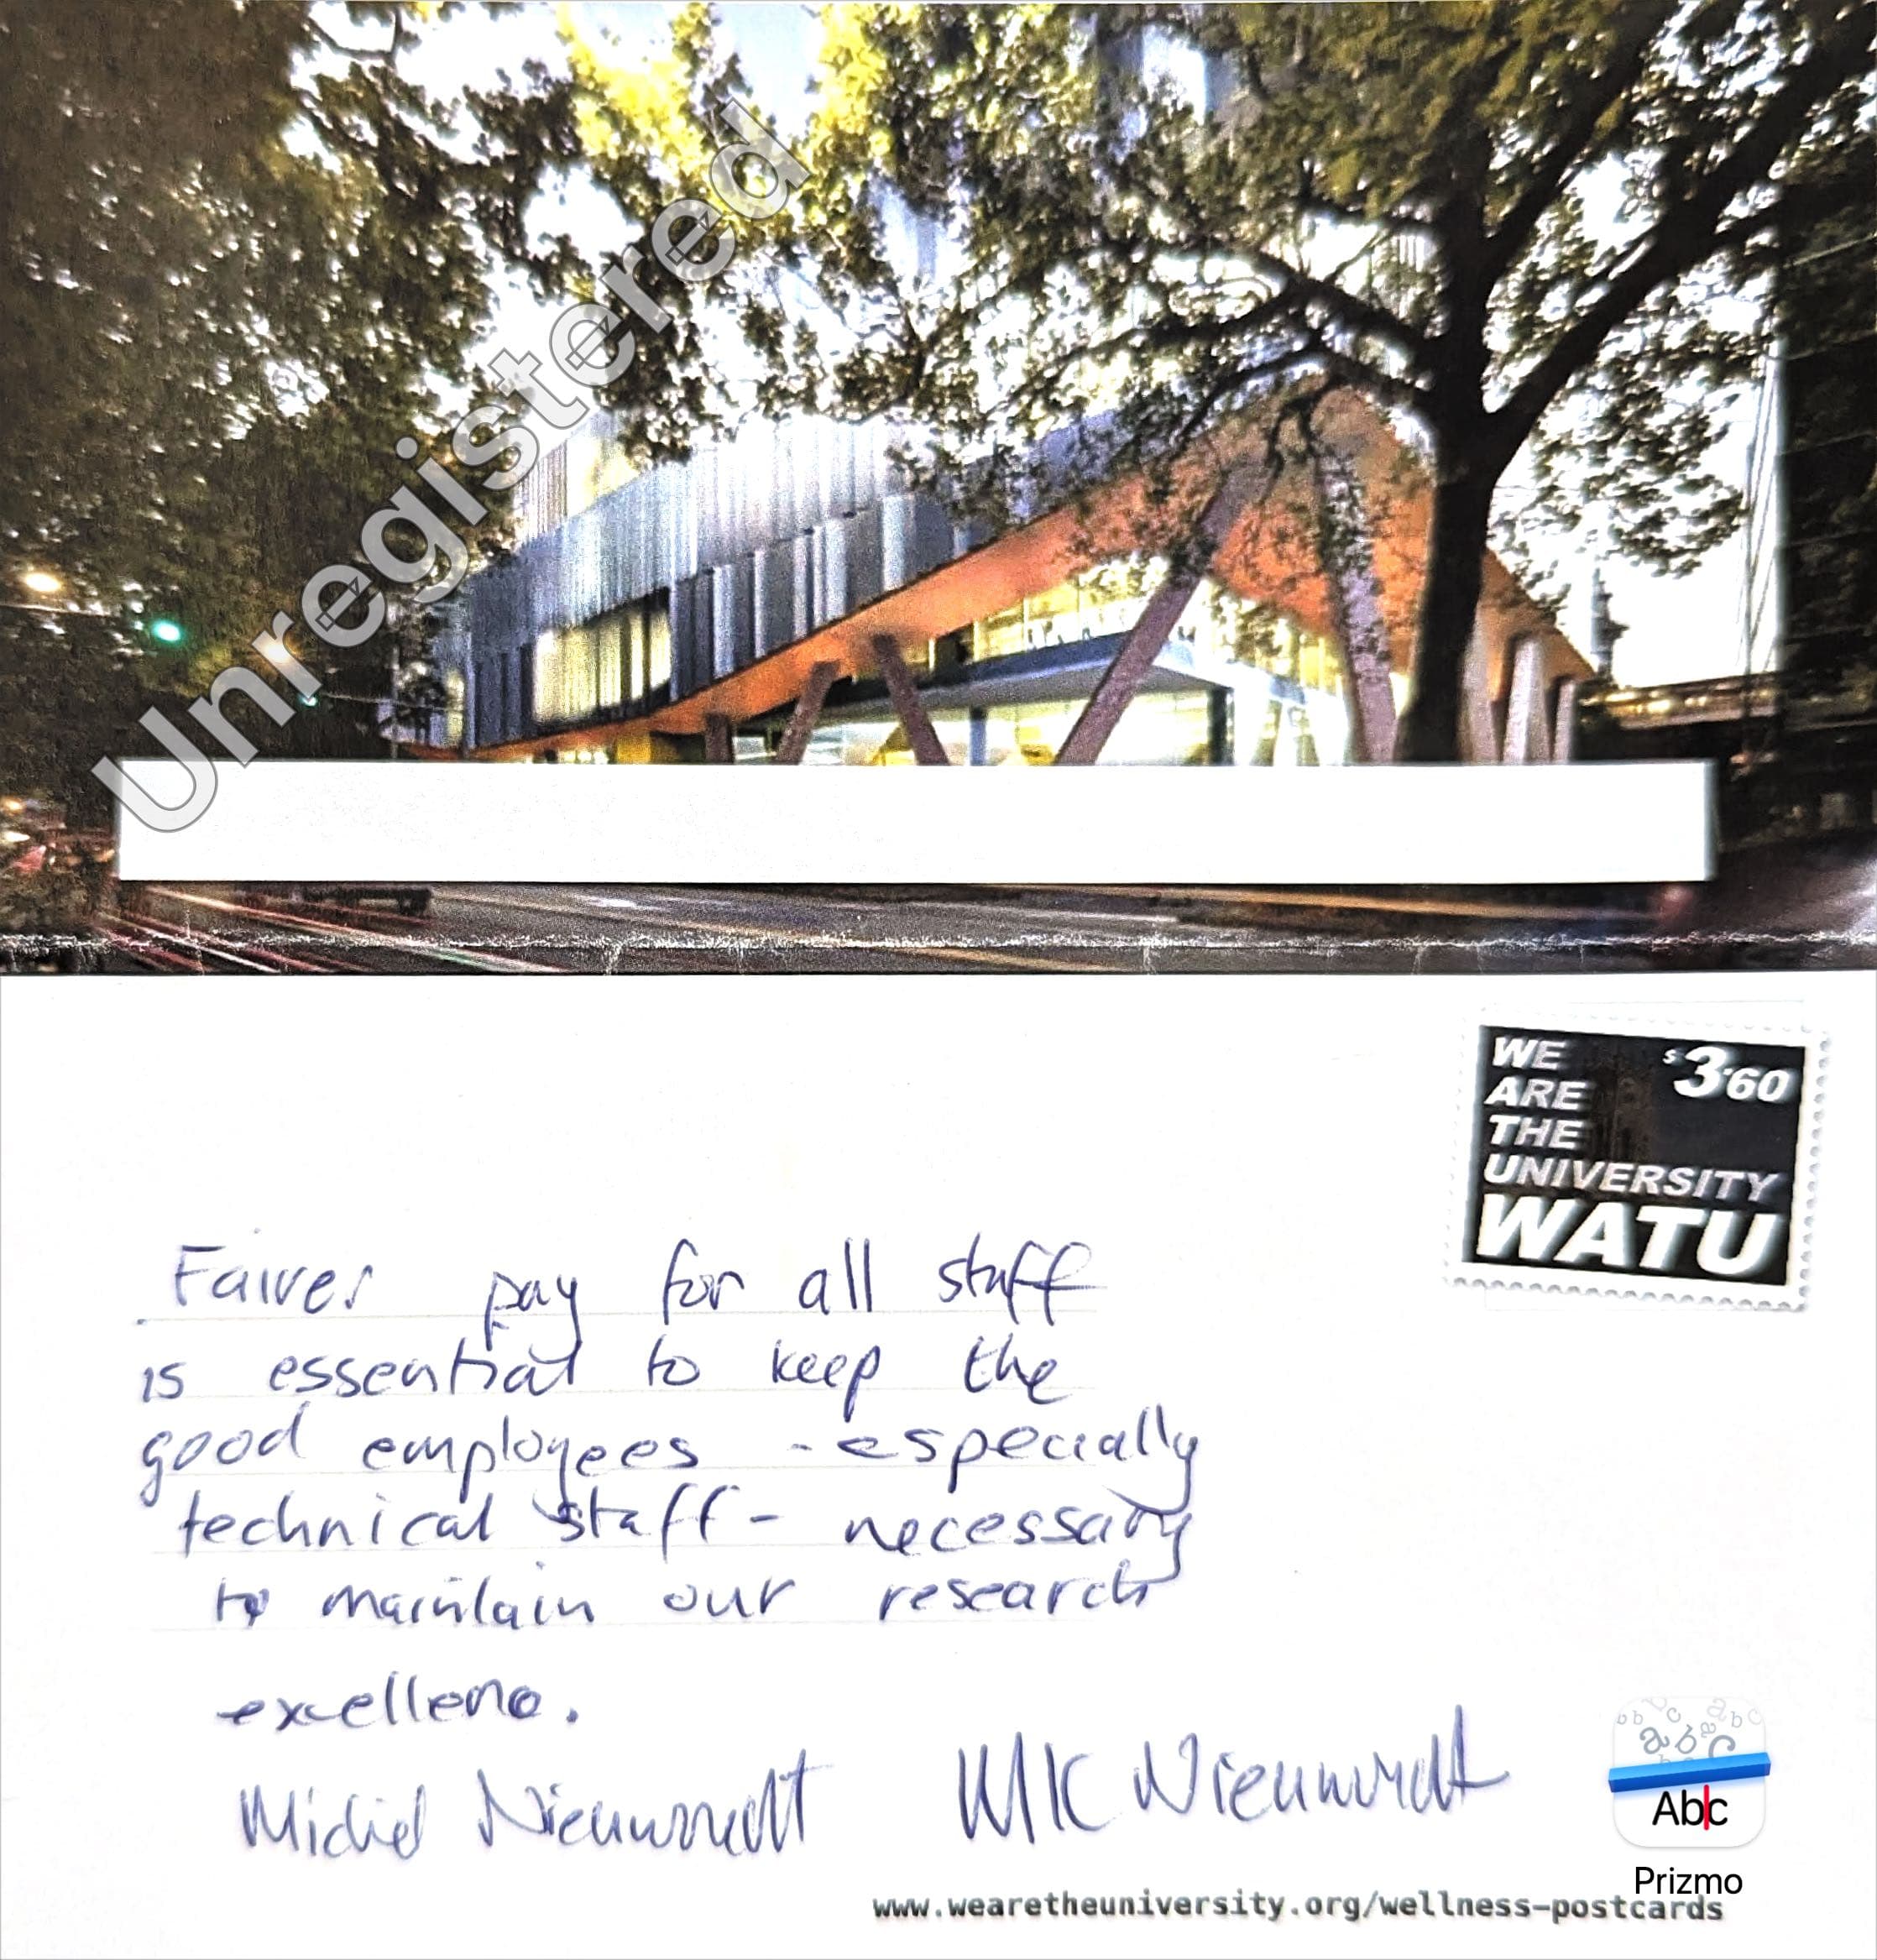 Unregistered
WE
ARE
THE
UNIVERSITY
WATU
$3.60
Fairer pay for all staff
is essential to keep the
good employees - especially
technical staff - necessary
to maintain our research
excellence.
Michiel Nieuwoudt MK Nieuwoudt
Abc
Prizmo
www.wearetheuniversity.org/wellness-postcards